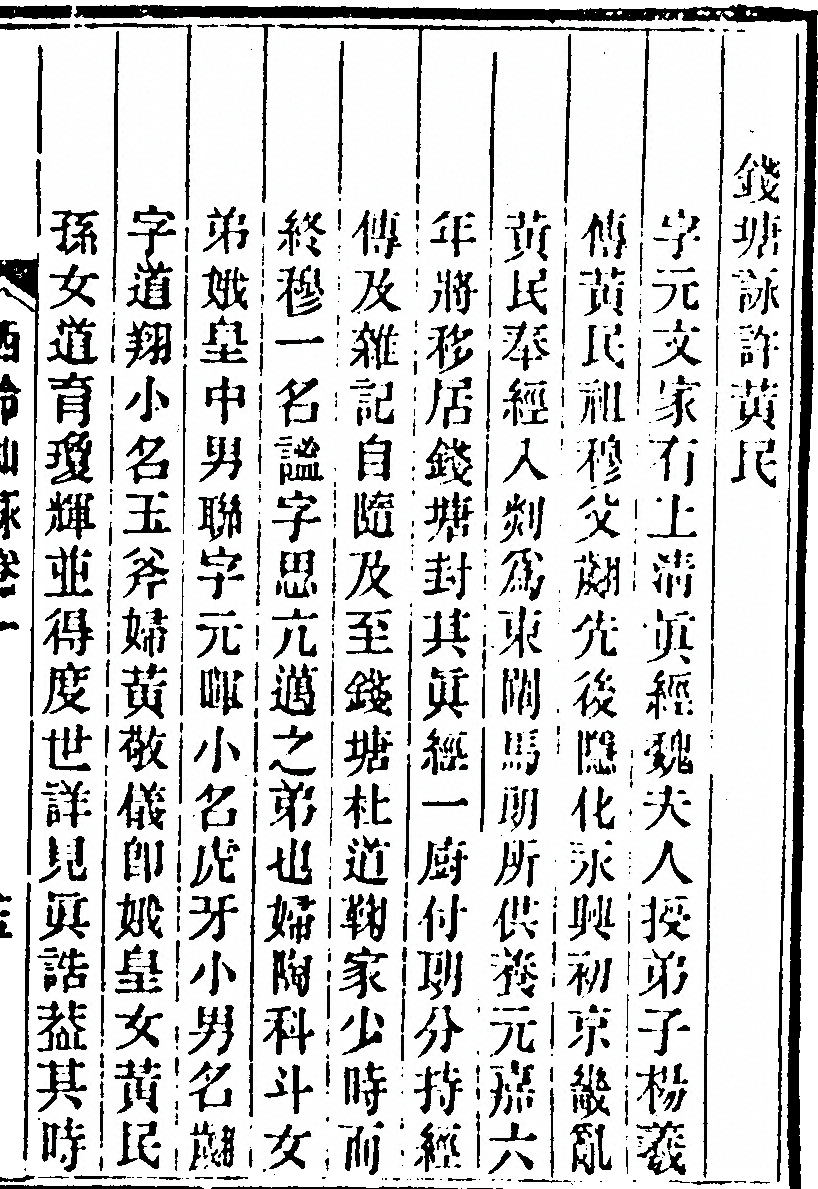 錢塘詠許黃民
字元文家有上清眞經魏夫人授弟子楊羲
傳黃民祖穆父翽先後隱化永興初京畿亂
黃民奉經入剡爲東闡馬朗所供養元嘉六
年將移居錢塘封其眞經一廚付朗分持經
傳及雜記自隨及至錢塘杜道鞠家少時而
終穆一名謐字思亢邁之弟也婦陶科斗女
弟娥皇中男聯字元暉小名虎牙小男名翽
字道翔小名玉斧婦黃敬儀卽娥皇女黃民
孫女道育瓊輝並得度世詳見眞誥葢其時
西泠仙詠卷一